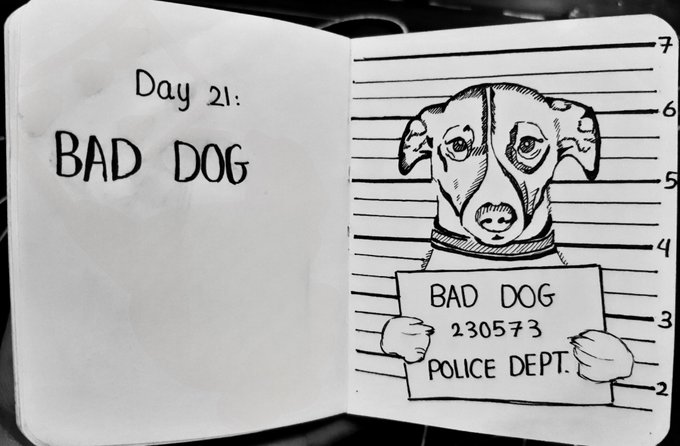 Day 21:
BAD DOG
7
6
5
4
BAD DOG
230573
3
POLICE DEPT.
2